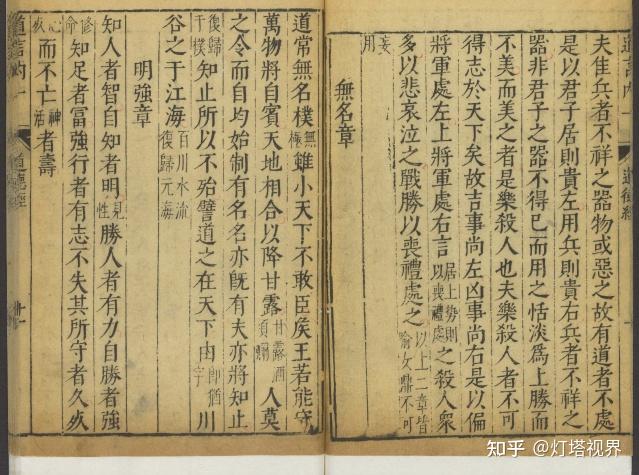 夫隹兵者不祥之器物或惡之故有道者不處
是以君子居則貴左用兵則貴右兵者不祥之
器非君子之器不得已而用之恬淡爲上勝而
不美而美之者是樂殺人也夫樂殺人者不可
得志於天下矣故吉事尚左凶事尚右是以偏
將軍處左上將軍處右言居上勢則以喪禮處之殺人衆
多以悲哀泣之戰勝以喪禮處之以上二章皆喻女鼎不可
妄用
無名章
道常無名樸無極雖小天下不敢臣侯王若能守
萬物將自賓天地相合以降甘露甘露酒須人莫
之令而自均始制有名名亦旣有夫亦將知止
復歸于樸知止所以不殆譬道之在天下由即猶字川
谷之于江海百川水流復歸元海
明強章
知人者智自知者明見性勝人者有力自勝者強
修命知足者富強行者有志不失其所守者久死
心死而不亡神活者壽
道言內一
道德經
知乎 @灯塔视界